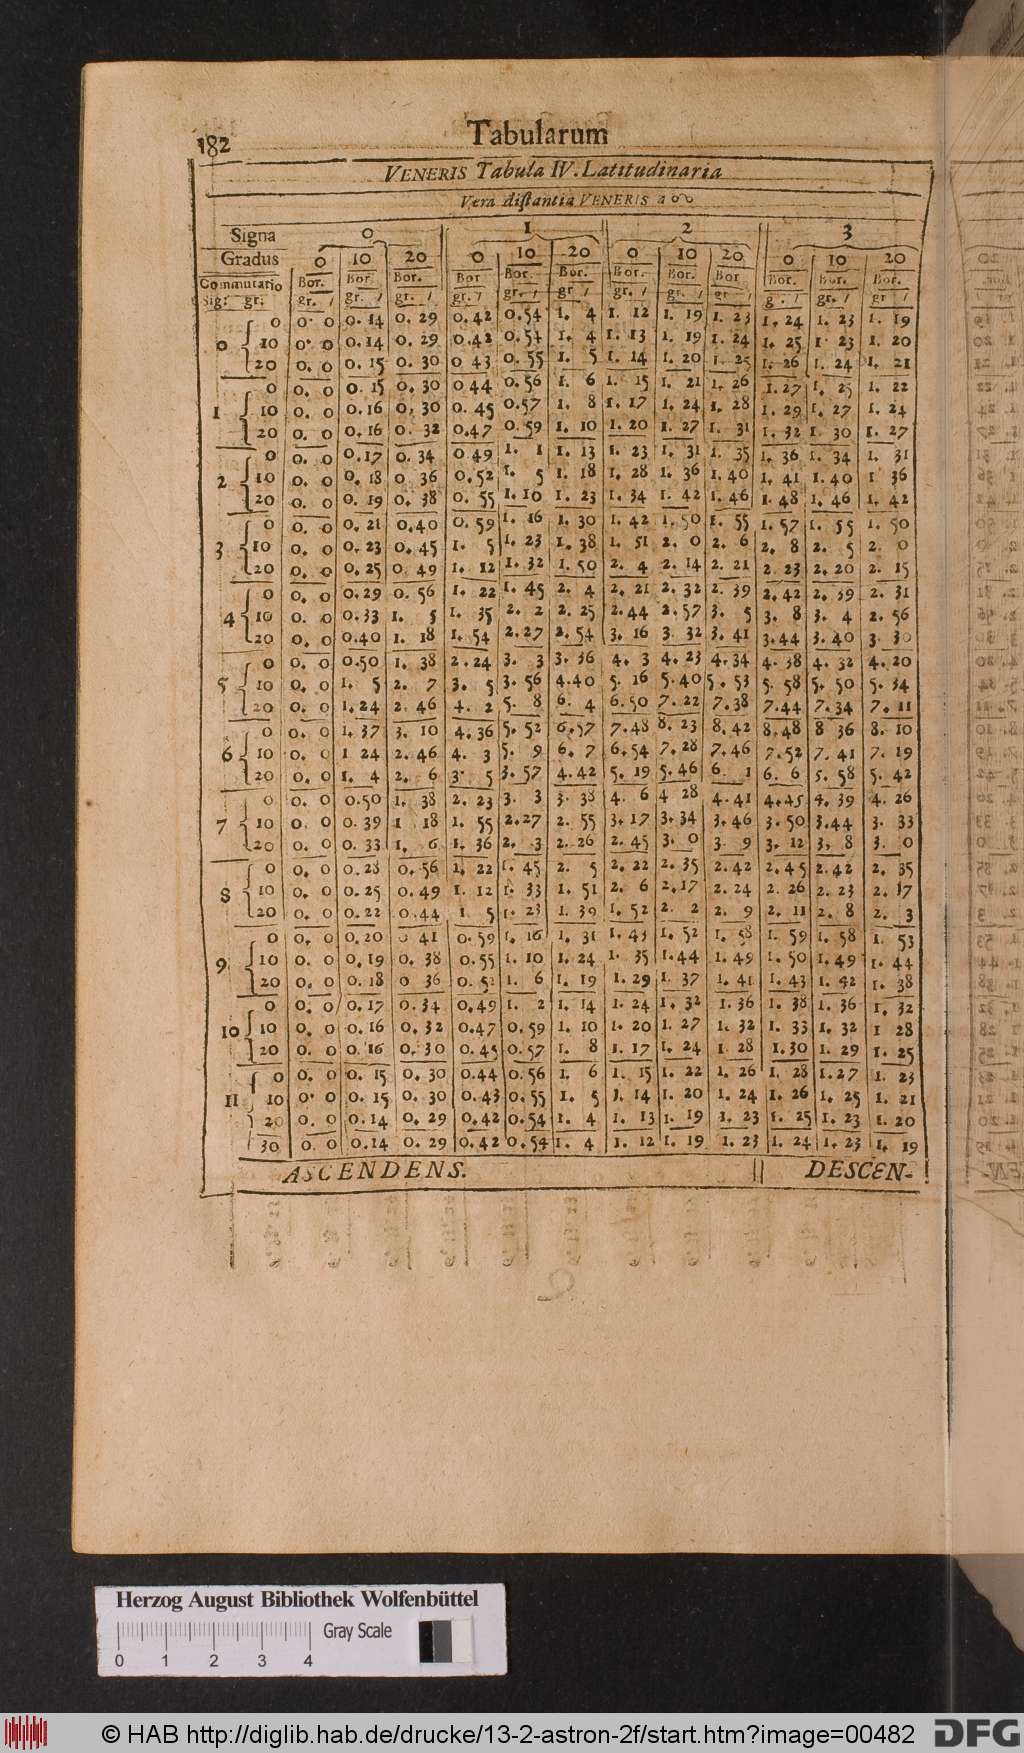 182
Tabularum
VENERIS Tabula IV. Latitudinaria
Vera distantia VENERIS a ☊
Signa 0 1 2 3
Gradus 0 10 20 0 10 20 0 10 20 0 10 20
Commutatio Bor. Bor. Bor. Bor Bor. Bor. Bor. Bor. Bor Bor. Bor. Bor.
Sig: gr: gr. / gr. / gr. / gr. / gr. / gr / gr. / gr. / gr / g . / gr. / gr /
0 0. 0 0. 14 0. 29 0. 42 0. 54 1. 4 1. 12 1. 19 1. 23 1. 24 1. 23 1. 19
0 10 0. 0 0. 14 0. 29 0.42 0. 54 1. 4 1. 13 1. 19 1. 24 1. 25 1 23 1. 20
20 0. 0 0. 15 0. 30 0 43 0. 55 1. 5 1. 14 1. 20 1. 25 1. 26 1. 24 1. 21
0 0. 0 0. 15 0. 30 0 44 0. 56 1. 6 1. 15 1. 21 1. 26 1. 27 1. 25 1. 22
1 10 0. 0 0. 16 0. 30 0. 45 0.57 1. 8 1. 17 1. 24 1. 28 1. 29 1. 27 1. 24
20 0. 0 0. 16 0. 32 0.47 0. 59 1. 10 1. 20 1. 27 1. 31 1. 32 1. 30 1. 27
0 0. 0 0.17 0. 34 0 49 1. 1 1. 13 1. 23 1. 31 1. 35 1. 36 1. 34 1. 31
2 10 0. 0 0. 18 0 36 0.52 1. 5 1. 18 1. 28 1. 36 1. 40 1. 41 1. 40 1 36
20 0. 0 0. 19 0. 38 0. 55 1. 10 1. 23 1. 34 1. 42 1. 46 1. 48 1. 46 1. 42
0 0. 0 0. 21 0.40 0. 59 1. 16 1. 30 1. 42 1. 50 1. 55 1. 57 1. 55 1. 50
3 10 0. 0 0. 23 0. 45 1. 5 1. 23 1. 38 1. 51 2. 0 2. 6 2. 8 2. 5 2. 0
20 0. 0 0. 25 0 49 1. 12 1. 32 1. 50 2. 4 2. 14 2. 21 2 23 2. 20 2. 15
0 0. 0 0.29 0. 56 1. 22 1. 45 2. 4 2. 21 2. 32 2. 39 2. 42 2. 39 2. 31
4 10 0. 0 0.33 1. 5 1. 35 2. 2 2. 25 2.44 2.57 3. 5 3. 8 3. 4 2. 56
20 0. 0 0.40 1. 18 1. 54 2.27 2. 54 3. 16 3 32 3. 41 3.44 3. 40 3. 30
0 0. 0 0.50 1. 38 2.24 3. 3 3. 36 4. 3 4. 23 4. 34 4. 38 4. 32 4. 20
5 10 0. 0 1. 5 2. 7 3. 5 3. 56 4.40 5. 16 5.40 5. 53 5. 58 5. 50 5. 34
20 0. 0 1. 24 2. 46 4. 2 5. 8 6. 4 6. 50 7. 22 7. 38 7.44 7. 34 7. 11
0 0. 0 1. 37 3. 10 4. 36 5. 52 6. 57 7.48 8. 23 8. 42 8. 48 8 36 8. 10
6 10 0. 0 1 24 2. 46 4. 3 5. 9 6. 7 6. 54 7. 28 7. 46 7. 52 7. 41 7. 19
20 0. 0 1. 4 2. 6 3. 5 3. 57 4. 42 5. 19 5. 46 6. 1 6. 6 5. 58 5. 42
0 0. 0 0.50 1. 38 2. 23 3. 3 3. 38 4. 6 4 28 4. 41 4. 45 4. 39 4. 26
7 10 0. 0 0. 39 1 18 1. 55 2.27 2. 55 3. 17 3. 34 3. 46 3. 50 3.44 3. 33
20 0. 0 0. 33 1. 6 1. 36 2. 3 2. 26 2. 45 3. 0 3. 9 3. 12 3. 8 3. 0
0 0. 0 0. 28 0. 56 1. 22 1. 45 2. 5 2. 22 2. 35 2. 42 2. 45 2. 42 2. 35
8 10 0. 0 0. 25 0. 49 1. 12 1. 33 1. 51 2. 6 2. 17 2. 24 2. 26 2. 23 2. 17
20 0. 0 0. 22 0.44 1 5 1. 23 1. 39 1. 52 2. 2 2. 9 2. 11 2. 8 2. 3
0 0. 0 0. 20 0 41 0. 59 1. 16 1. 31 1. 43 1. 52 1. 58 1. 59 1. 58 1. 53
9 10 0. 0 0. 19 0. 38 0. 55 1. 10 1. 24 1. 35 1.44 1. 49 1. 50 1. 49 1. 44
20 0. 0 0. 18 0 36 0. 52 1. 6 1. 19 1. 29 1. 37 1. 41 1. 43 1. 42 1. 38
0 0. 0 0. 17 0. 34 0. 49 1. 2 1. 14 1. 24 1. 32 1. 36 1. 38 1. 36 1. 32
10 10 0. 0 0. 16 0. 32 0.47 0. 59 1. 10 1. 20 1. 27 1. 32 1. 33 1. 32 1 28
20 0. 0 0. 16 0. 30 0. 45 0. 57 1. 8 1. 17 1. 24 1 28 1. 30 1. 29 1. 25
0 0. 0 0. 15 0. 30 0.44 0. 56 1. 6 1. 15 1. 22 1. 26 1. 28 1. 27 1. 23
11 10 0. 0 0. 15 0. 30 0. 43 0. 55 1. 5 1. 14 1. 20 1. 24 1. 26 1. 25 1. 21
20 0. 0 0. 14 0. 29 0. 42 0. 54 1. 4 1. 13 1. 19 1. 23 1. 25 1. 23 1. 20
30 0. 0 0. 14 0. 29 0. 42 0. 54 1. 4 1. 12 1. 19 1. 23 1. 24 1. 23 1. 19
ASCENDENS. DESCEN-
Herzog August Bibliothek Wolfenbüttel
Gray Scale
0 1 2 3 4
© HAB http://diglib.hab.de/drucke/13-2-astron-2f/start.htm?image=00482
DFG